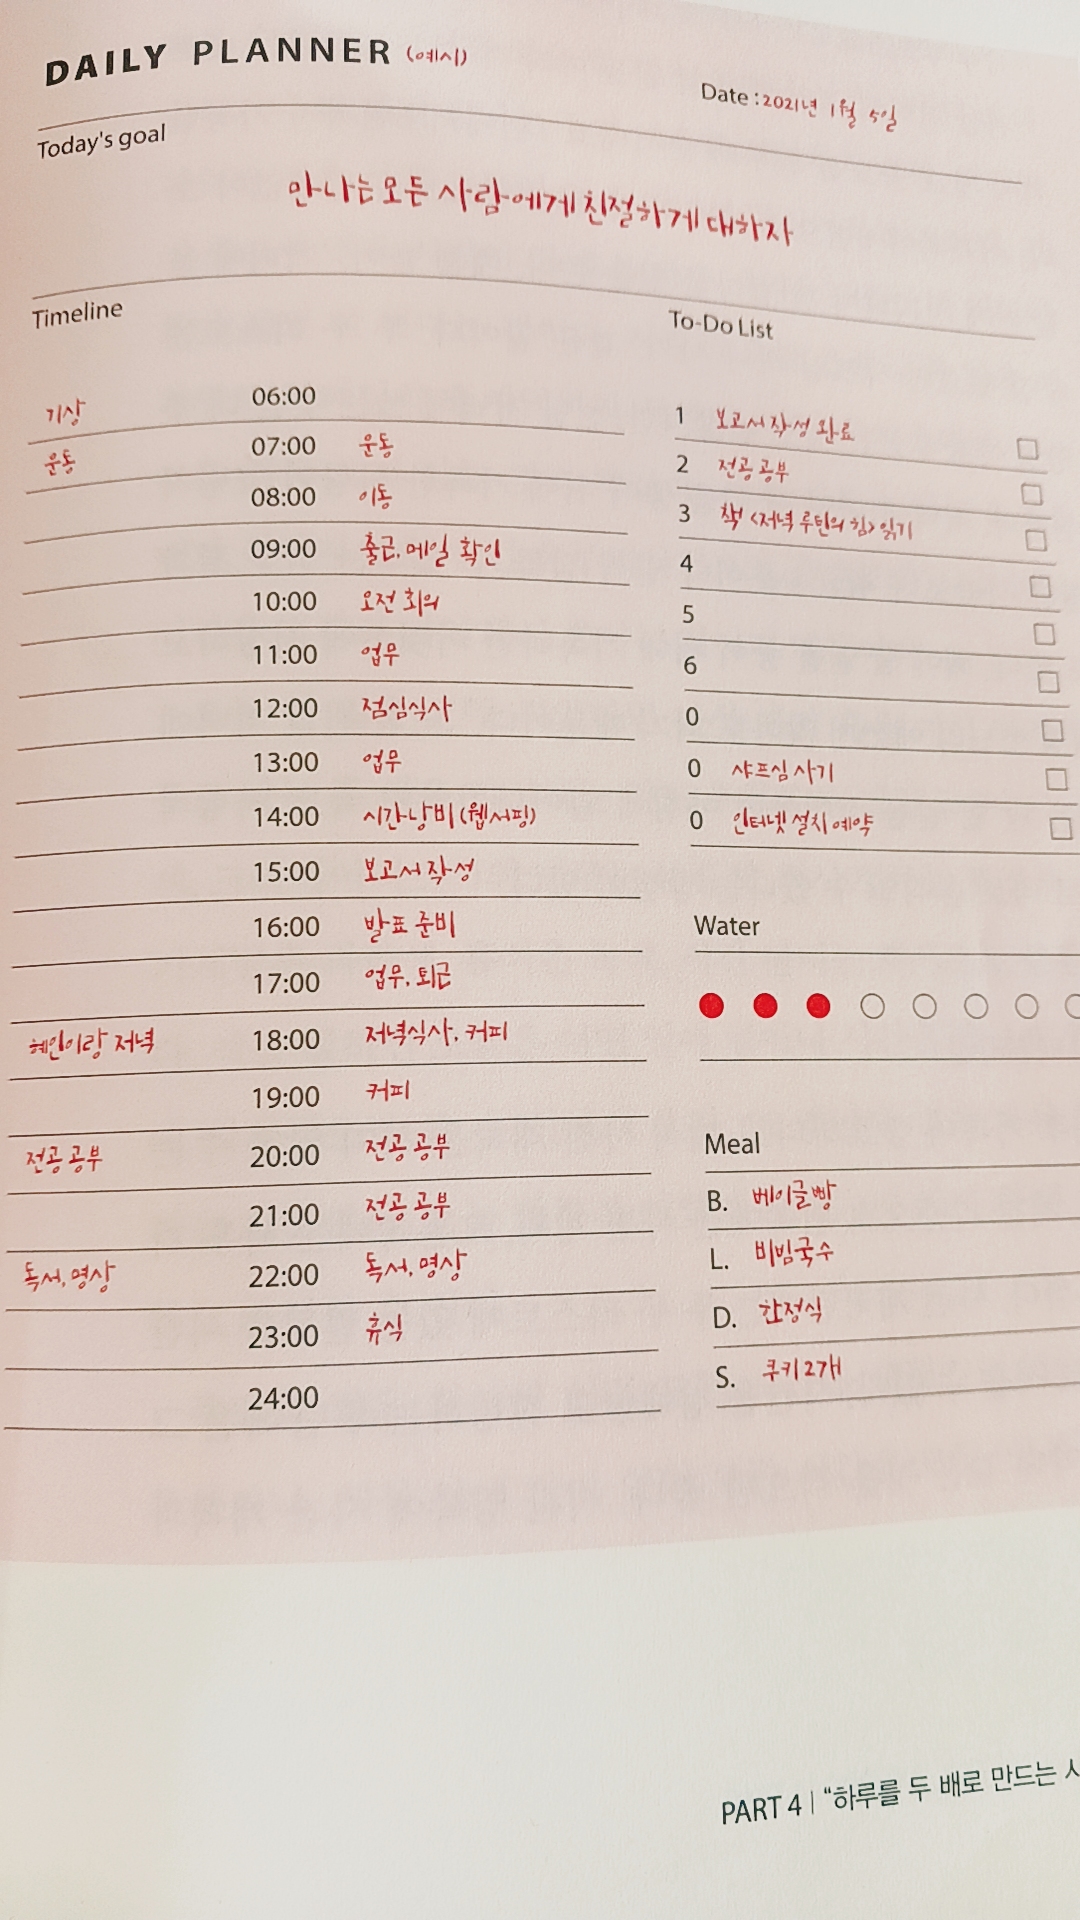 DAILY PLANNER (예시)
Date : 2021년 1월 5일
Today's goal
만나는 모든 사람에게 친절하게 대하자
Timeline
기상 06:00
운동 07:00 운동
08:00 이동
09:00 출근, 메일 확인
10:00 오전 회의
11:00 업무
12:00 점심식사
13:00 업무
14:00 시간낭비 (웹서핑)
15:00 보고서 작성
16:00 발표 준비
17:00 업무, 퇴근
혜인이랑 저녁 18:00 저녁식사, 커피
19:00 커피
전공 공부 20:00 전공 공부
21:00 전공 공부
독서, 명상 22:00 독서, 명상
23:00 휴식
24:00
To-Do List
1 보고서 작성 완료
2 전공 공부
3 책 <저녁 루틴의 힘> 읽기
4
5
6
0
0 샤프심 사기
0 인터넷 설치 예약
Water
Meal
B. 베이글빵
L. 비빔국수
D. 한정식
S. 쿠키 2개
PART 4 | “하루를 두 배로 만드는